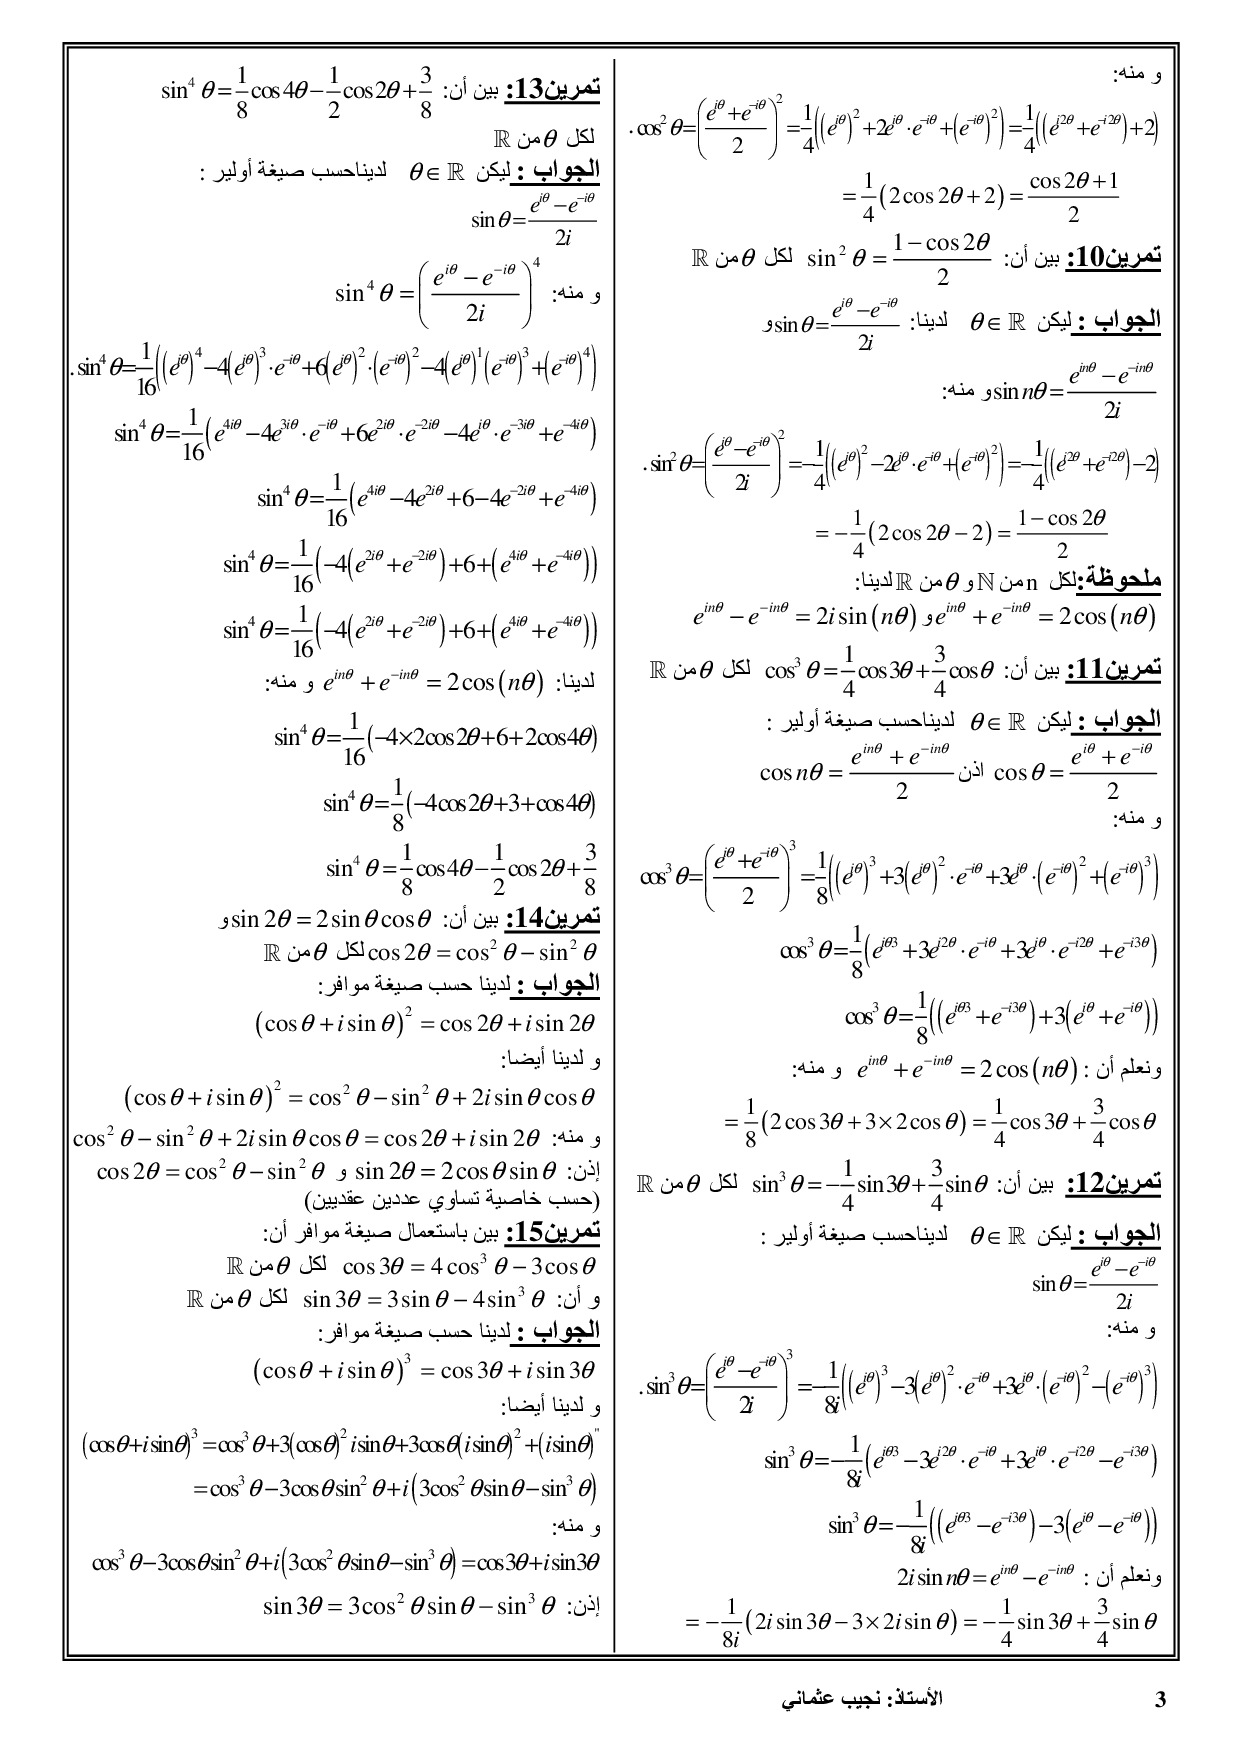 و منه:
. cos² θ = ((e^{iθ} + e^{-iθ})/2)² = 1/4((e^{iθ})² + 2e^{iθ} · e^{-iθ} + (e^{-iθ})²) = 1/4((e^{i2θ} + e^{-i2θ}) + 2)
= 1/4(2cos 2θ + 2) = (cos 2θ + 1)/2
تمرين10: بين أن: sin² θ = (1 − cos 2θ)/2 لكل θ من ℝ
الجواب : ليكن θ ∈ ℝ لدينا: sin θ = (e^{iθ} − e^{-iθ})/2i و
sin nθ = (e^{inθ} − e^{-inθ})/2i و منه:
. sin² θ = ((e^{iθ} − e^{-iθ})/2i)² = −1/4((e^{iθ})² − 2e^{iθ} · e^{-iθ} + (e^{-iθ})²) = −1/4((e^{i2θ} + e^{-i2θ}) − 2)
= −1/4(2cos 2θ − 2) = (1 − cos 2θ)/2
ملحوظة:لكل n من ℕ و θ من ℝ لدينا:
e^{inθ} + e^{-inθ} = 2cos(nθ) و e^{inθ} − e^{-inθ} = 2i sin(nθ)
تمرين11: بين أن: cos³ θ = 1/4 cos 3θ + 3/4 cos θ لكل θ من ℝ
الجواب : ليكن θ ∈ ℝ لديناحسب صيغة أولير :
cos θ = (e^{iθ} + e^{-iθ})/2 اذن cos nθ = (e^{inθ} + e^{-inθ})/2
و منه:
cos³ θ = ((e^{iθ} + e^{-iθ})/2)³ = 1/8((e^{iθ})³ + 3(e^{iθ})² · e^{-iθ} + 3e^{iθ} · (e^{-iθ})² + (e^{-iθ})³)
cos³ θ = 1/8(e^{iθ3} + 3e^{i2θ} · e^{-iθ} + 3e^{iθ} · e^{-i2θ} + e^{-i3θ})
cos³ θ = 1/8((e^{iθ3} + e^{-i3θ}) + 3(e^{iθ} + e^{-iθ}))
ونعلم أن : e^{inθ} + e^{-inθ} = 2cos(nθ) و منه:
= 1/8(2cos 3θ + 3×2cos θ) = 1/4 cos 3θ + 3/4 cos θ
تمرين12: بين أن: sin³ θ = −1/4 sin 3θ + 3/4 sin θ لكل θ من ℝ
الجواب : ليكن θ ∈ ℝ لديناحسب صيغة أولير :
sin θ = (e^{iθ} − e^{-iθ})/2i
و منه:
. sin³ θ = ((e^{iθ} − e^{-iθ})/2i)³ = −1/8i((e^{iθ})³ − 3(e^{iθ})² · e^{-iθ} + 3e^{iθ} · (e^{-iθ})² − (e^{-iθ})³)
sin³ θ = −1/8i(e^{iθ3} − 3e^{i2θ} · e^{-iθ} + 3e^{iθ} · e^{-i2θ} − e^{-i3θ})
sin³ θ = −1/8i((e^{iθ3} − e^{-i3θ}) − 3(e^{iθ} − e^{-iθ}))
ونعلم أن : 2i sin nθ = e^{inθ} − e^{-inθ}
= −1/8i(2i sin 3θ − 3×2i sin θ) = −1/4 sin 3θ + 3/4 sin θ
تمرين13: بين أن: sin⁴ θ = 1/8 cos 4θ − 1/2 cos 2θ + 3/8
لكل θ من ℝ
الجواب : ليكن θ ∈ ℝ لديناحسب صيغة أولير :
sin θ = (e^{iθ} − e^{-iθ})/2i
و منه: sin⁴ θ = ((e^{iθ} − e^{-iθ})/2i)⁴
. sin⁴ θ = 1/16((e^{iθ})⁴ − 4(e^{iθ})³ · e^{-iθ} + 6(e^{iθ})² · (e^{-iθ})² − 4(e^{iθ})¹(e^{-iθ})³ + (e^{-iθ})⁴)
sin⁴ θ = 1/16(e^{4iθ} − 4e^{3iθ} · e^{-iθ} + 6e^{2iθ} · e^{-2iθ} − 4e^{iθ} · e^{-3iθ} + e^{-4iθ})
sin⁴ θ = 1/16(e^{4iθ} − 4e^{2iθ} + 6 − 4e^{-2iθ} + e^{-4iθ})
sin⁴ θ = 1/16(−4(e^{2iθ} + e^{-2iθ}) + 6 + (e^{4iθ} + e^{-4iθ}))
sin⁴ θ = 1/16(−4(e^{2iθ} + e^{-2iθ}) + 6 + (e^{4iθ} + e^{-4iθ}))
لدينا: e^{inθ} + e^{-inθ} = 2cos(nθ) و منه:
sin⁴ θ = 1/16(−4×2cos 2θ + 6 + 2cos 4θ)
sin⁴ θ = 1/8(−4cos 2θ + 3 + cos 4θ)
sin⁴ θ = 1/8 cos 4θ − 1/2 cos 2θ + 3/8
تمرين14: بين أن: sin 2θ = 2 sin θ cos θ و
cos 2θ = cos² θ − sin² θ لكل θ من ℝ
الجواب : لدينا حسب صيغة موافر:
(cos θ + i sin θ)² = cos 2θ + i sin 2θ
و لدينا أيضا:
(cos θ + i sin θ)² = cos² θ − sin² θ + 2i sin θ cos θ
و منه: cos² θ − sin² θ + 2i sin θ cos θ = cos 2θ + i sin 2θ
إذن: sin 2θ = 2 cos θ sin θ و cos 2θ = cos² θ − sin² θ
(حسب خاصية تساوي عددين عقديين)
تمرين15: بين باستعمال صيغة موافر أن:
cos 3θ = 4 cos³ θ − 3 cos θ لكل θ من ℝ
و أن: sin 3θ = 3 sin θ − 4 sin³ θ لكل θ من ℝ
الجواب : لدينا حسب صيغة موافر:
(cos θ + i sin θ)³ = cos 3θ + i sin 3θ
و لدينا أيضا:
(cos θ + i sin θ)³ = cos³ θ + 3(cos θ)² i sin θ + 3cos θ(i sin θ)² + (i sin θ)"
= cos³ θ − 3cos θ sin² θ + i(3cos² θ sin θ − sin³ θ)
و منه:
cos³ θ − 3cos θ sin² θ + i(3cos² θ sin θ − sin³ θ) = cos 3θ + i sin 3θ
إذن: sin 3θ = 3 cos² θ sin θ − sin³ θ
الأستاذ: نجيب عثماني
3